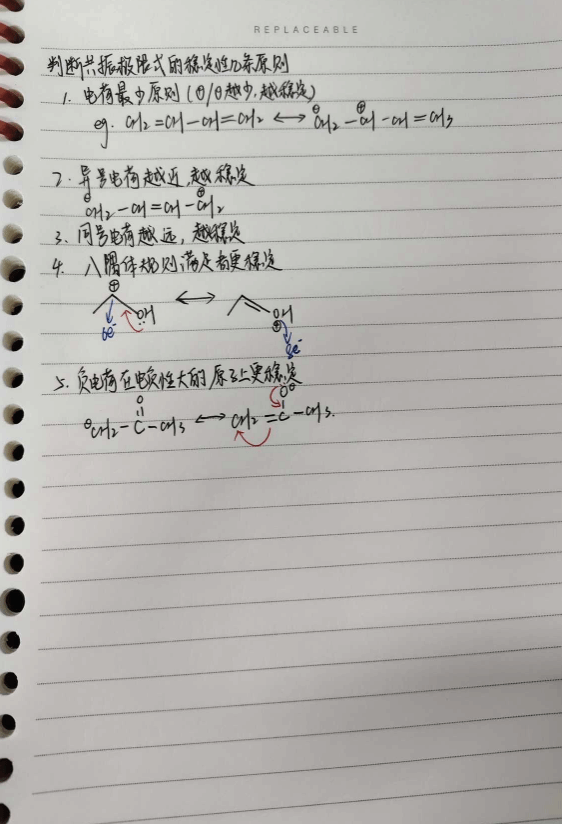 REPLACEABLE
判断共振极限式的稳定性几条原则
1. 电荷最少原则 (⊕/⊖越少,越稳定)
eg. CH2=CH-CH=CH2 ⟷ ⊖CH2-⊕CH-CH=CH3
2. 异号电荷越近,越稳定
⊖CH2-CH=CH-⊕CH2
3. 同号电荷越远,越稳定
4. 八隅体规则满足者更稳定
⊕ OH ⟷ OH ⊕
6e⁻ 8e⁻
5. 负电荷在电负性大的原子上更稳定
O O⊖
⊖CH2-C-CH3 ⟷ CH2=C-CH3.